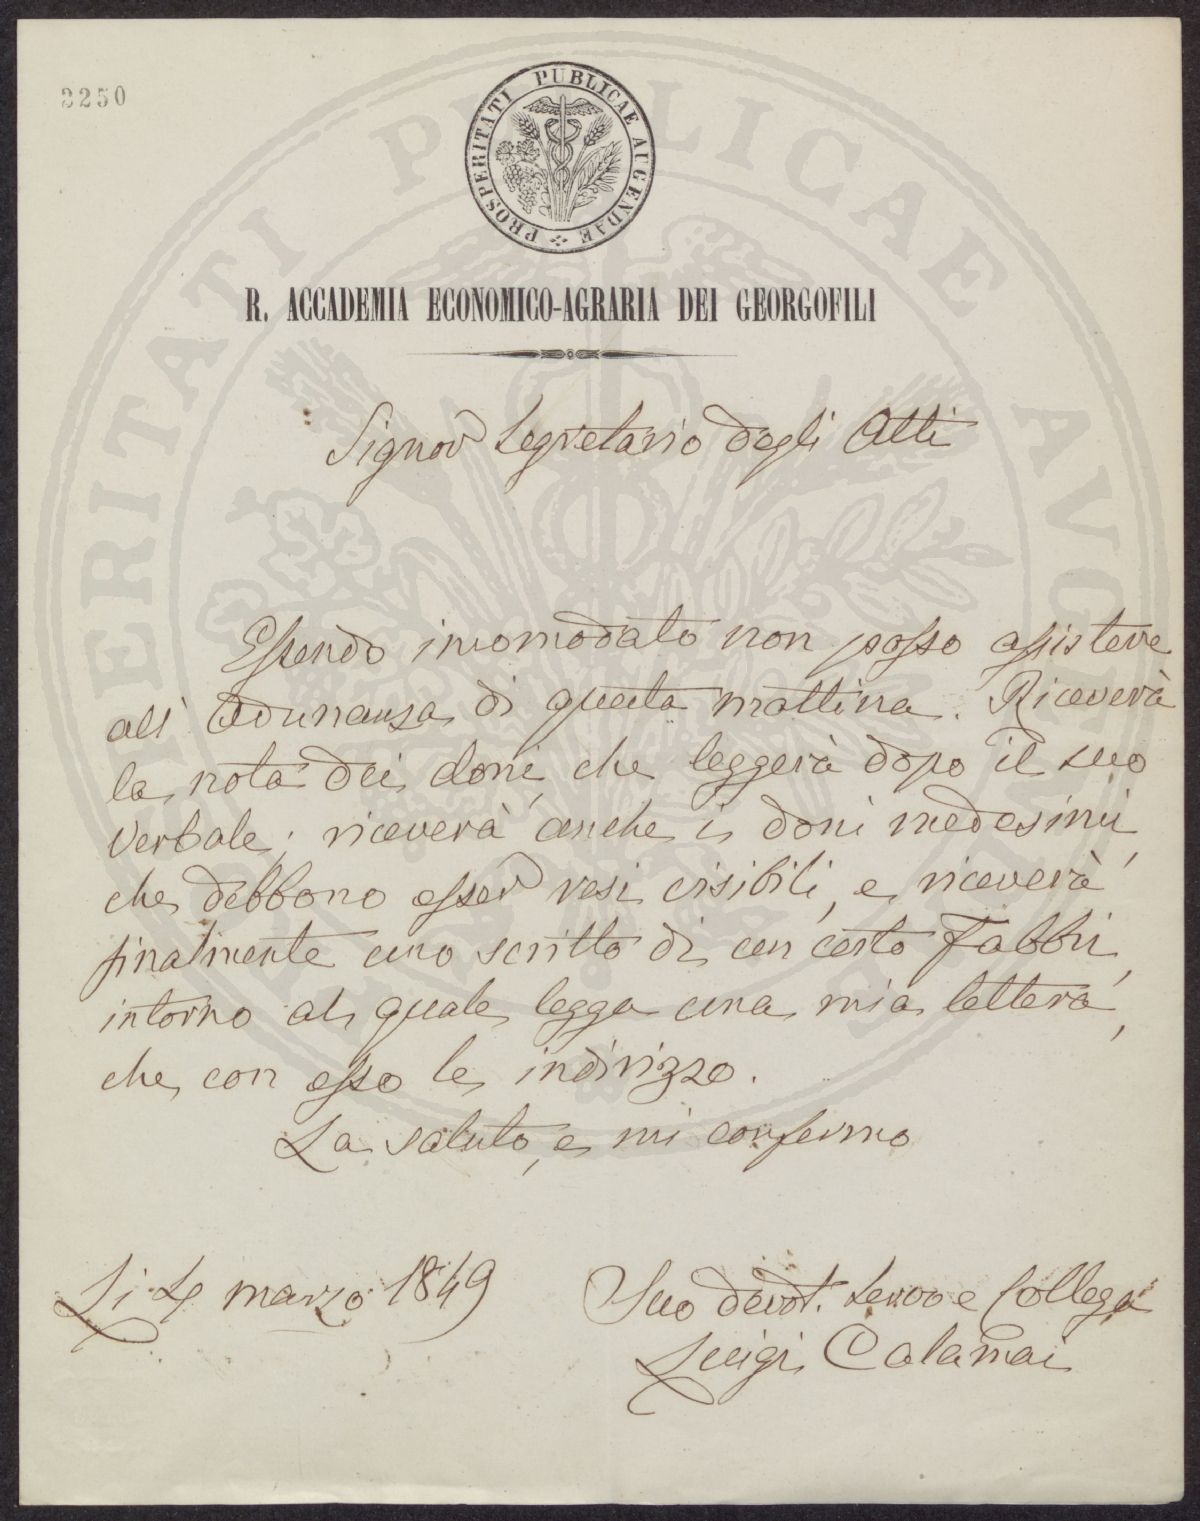 3250
PROSPERITATI PUBLICAE AUGENDAE
R. ACCADEMIA ECONOMICO-AGRARIA DEI GEORGOFILI
Signor Segretario degli Atti
Essendo incomodato non posso assistere
all' Adunanza di questa mattina. Riceverà
la nota dei doni, che leggerà dopo il suo
Verbale; riceverà anche i doni medesimi,
che debbono esser resi visibili, e riceverà
finalmente uno scritto di un certo Fabbri,
intorno al quale legga una mia lettera,
che con esso le indirizzo.
La saluto, e mi confermo
Li 4 marzo 1849
Suo devot. Servo e Collega
Luigi Calamai